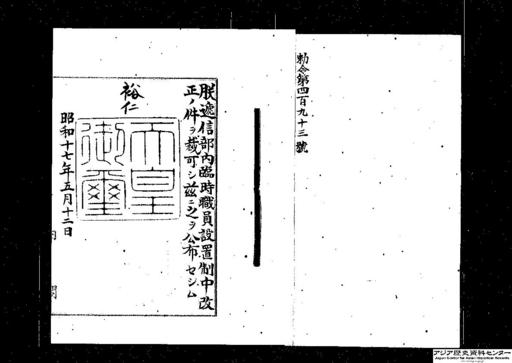 勅令第四百九十三號
朕遞信部內臨時職員設置制中改
正ノ件ヲ裁可シ茲ニ之ヲ公布セシム
裕仁
天皇
御璽
昭和十七年五月十二日
アジア歴史資料センター
Japan Center for Asian Historical Records